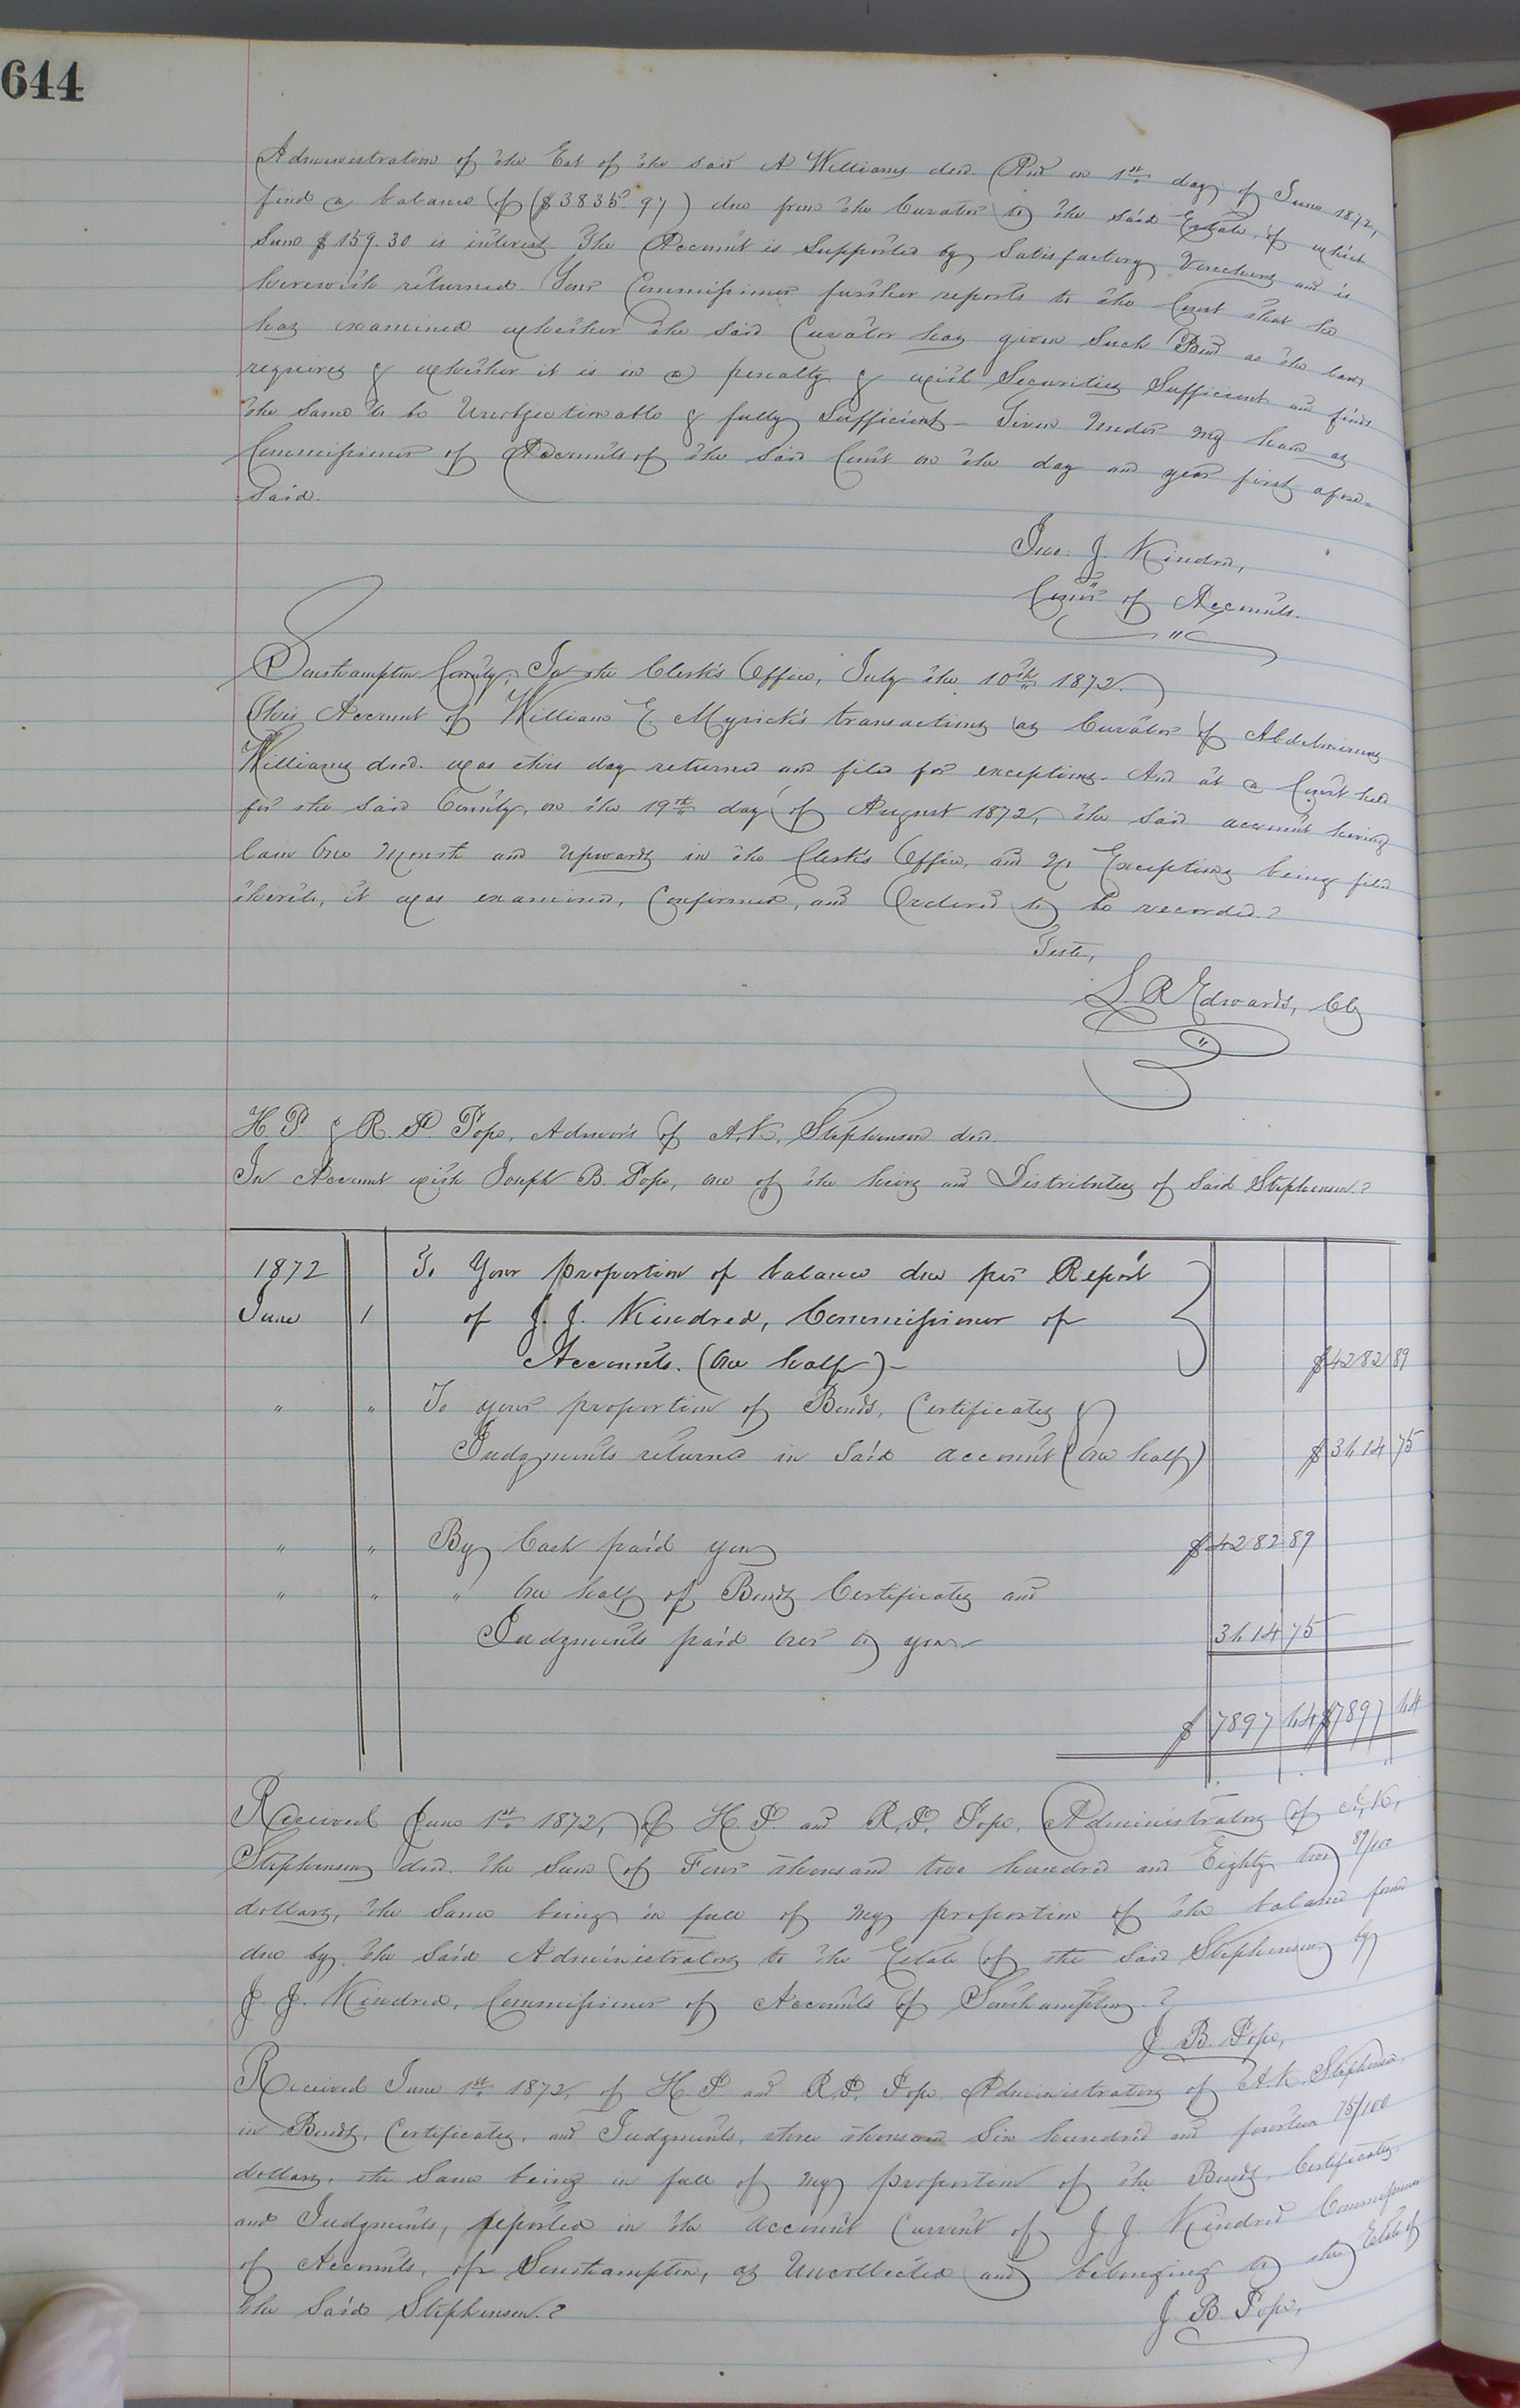 644
Administration of the Est of the said A Williams decd. And on 1st day of June 1872,
find a balance of ($3835.97) due from the Curator to the said Estate, of which
Sum $159.30 is interest. The Account is Supported by Satisfactory Vouchers and is
herewith returned. Your Commissioner further reports to the Court that he
has examined whether the said Curator has given Such Bond as the law
requires & whether it is in a penalty & with Securities Sufficient and finds
the Same to be Unobjectionable & fully Sufficient – Given Under my hand as
Commissioner of Accounts of the Said Court on the day and year first afore-
said.
Jno. J. Kindred,
Comr. of Accounts.
Southampton County; In the Clerk's Office, July the 10th 1872.
This Account of William E. Myrick's transactions as Curator of
Williams decd. was this day returned and filed for exceptions. And at a Court held
for the said County, on the 19th day of August 1872, the said account having
lain One Month and Upwards in the Clerk's Office, and No Exceptions being filed
thereto, it was examined, Confirmed, and Ordered to be recorded.
Teste,
L. R. Edwards, Clk
H. P. & R. P. Pope, Admors of A. K. Stephenson decd.
In Account with Joseph B. Pope, one of the heirs and Distributees of Said Stephenson.
1872 To Your proportion of balance due per Report
June 1 of J. J. Kindred, Commissioner of
Accounts. (One half) – $4282 89
" " To your proportion of Bonds, Certificates &
Judgments returned in Said account (One half) $3614 75
" " By Cash paid you $4282 89
" " " One half of Bonds Certificates and
Judgments paid over to you – 3614 75
$7897 64 $7897 64
Received June 1st 1872, of H. P. and R. P. Pope, Administrators of A. K.
Stephenson decd. the Sum of Four thousand two hundred and Eighty two 89/100
dollars, the Same being in full of my proportion of the balance found
due by the Said Administrators to the Estate of the Said Stephenson by
J. J. Kindred, Commissioner of Accounts of Southampton.
J. B. Pope,
Received June 1st 1872, of H. P. and R. P. Pope Administrators of A. K. Stephenson,
in Bonds, Certificates, and Judgments, three thousand Six hundred and fourteen 75/100
dollars, the Same being in full of my proportion of the Bonds, Certificates
and Judgments, reported in the account Current of J. J. Kindred Commissioner
of Accounts, of Southampton, as Uncollected and belonging to the Estate of
the Said Stephenson.
J. B. Pope,